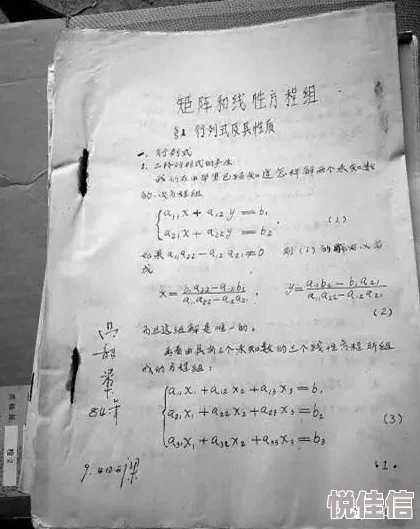 矩阵和线性方程组
§1 行列式及其性质
一. 行列式
1. 二阶行列式的产生
我们在中学里已经知道怎样解两个未知数
的一次方程组
{a₁₁x + a₁₂y = b₁
a₂₁x + a₂₂y = b₂ (1)
如果 a₁₁a₂₂ - a₁₂a₂₁ ≠ 0 则(1)的解可以写
成
x = (b₁a₂₂ - a₁₂b₂)/(a₁₁a₂₂ - a₁₂a₂₁), y = (a₁₁b₂ - b₁a₂₁)/(a₁₁a₂₂ - a₁₂a₂₁)
(2)
而且这组解是唯一的。
再看由具有三个未知数的三个线性方程所组
成的方程组:
{a₁₁x₁ + a₁₂x₂ + a₁₃x₃ = b₁
a₂₁x₁ + a₂₂x₂ + a₂₃x₃ = b₂ (3)
a₃₁x₁ + a₃₂x₂ + a₃₃x₃ = b₃
84年
·1·
悦佳信